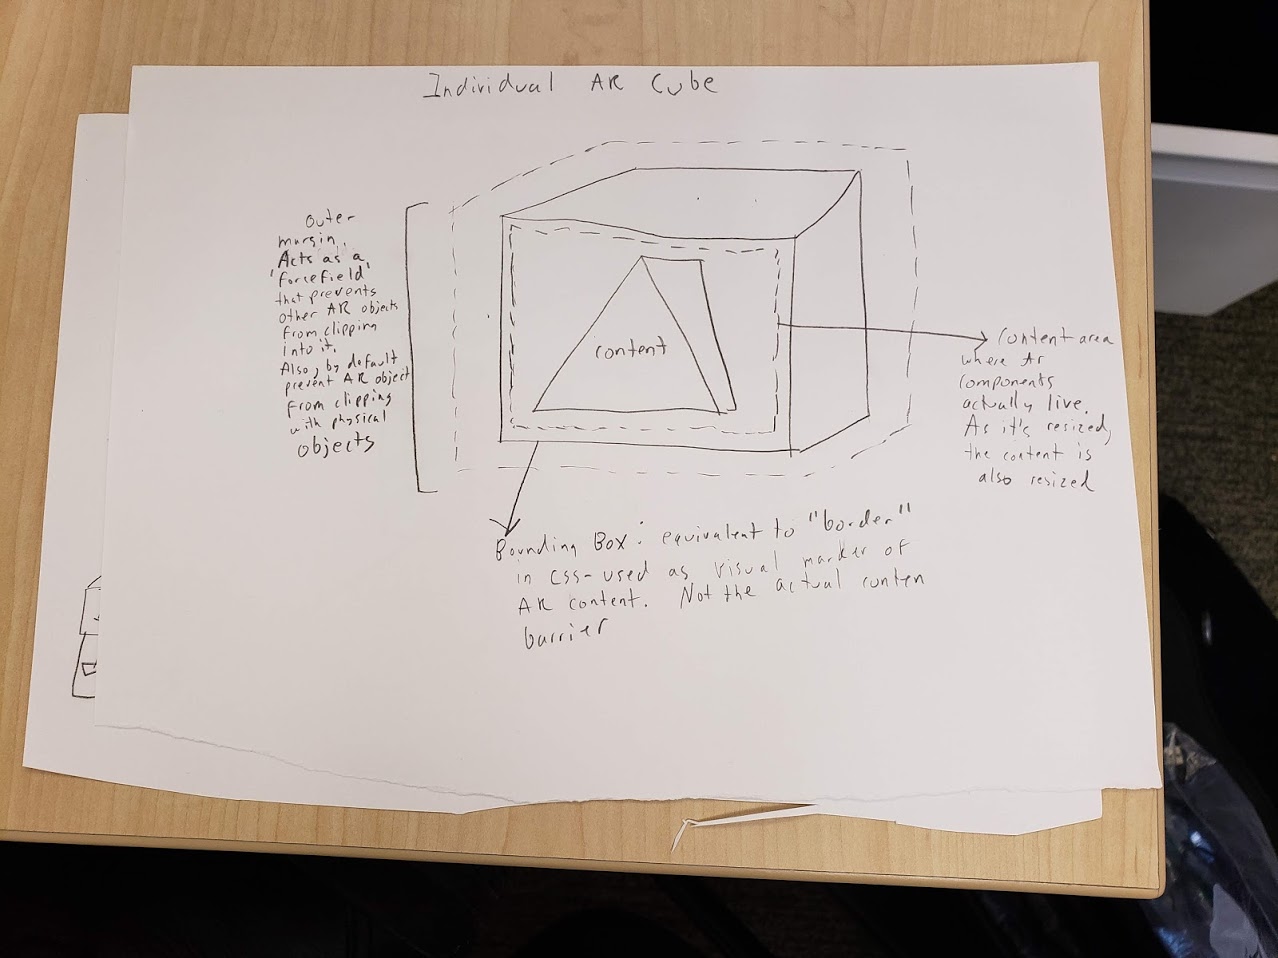 Individual AR Cube
outer
margin.
Acts as a
'forcefield'
that prevents
other AR objects
from clipping
into it.
Also, by default
prevent AR object
from clipping
with physical
objects
content
content area
where Ar
components
actually live.
As it's resized,
the content is
also resized
Bounding Box: equivalent to "border"
in css-used as visual marker of
AR content. Not the actual conten
barrier